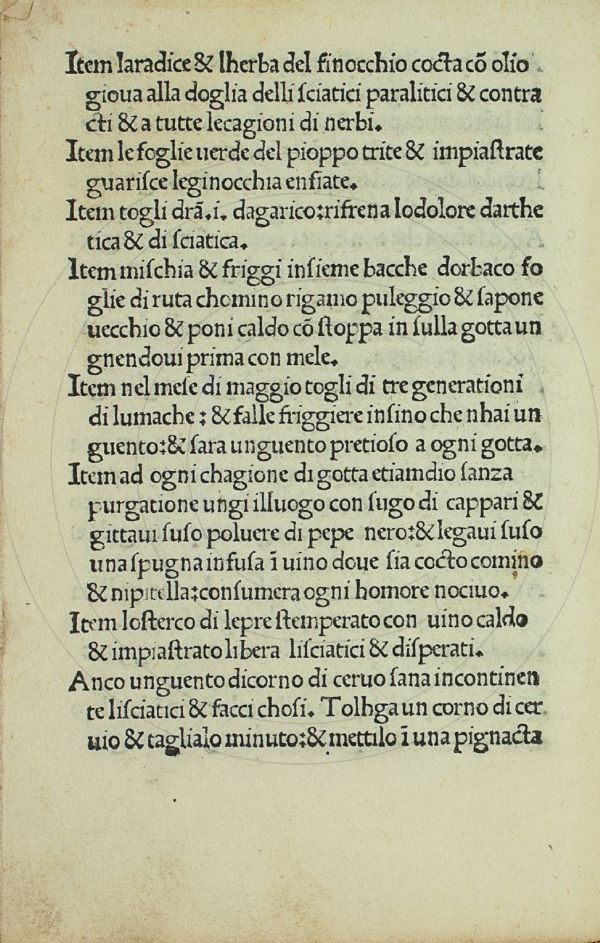 Item laradice & lherba del finocchio cocta cõ olio
gioua alla doglia delli ſciatici paralitici & contra
cti & a tutte lecagioni di nerbi.
Item le foglie uerde del pioppo trite & impiaſtrate
guariſce leginocchia enfiate.
Item togli drã.i. dagarico:rifrena lodolore darthe
tica & di ſciatica.
Item miſchia & friggi inſieme bacche dorbaco fo
glie di ruta chomino rigamo puleggio & ſapone
uecchio & poni caldo cõ ſtoppa in ſulla gotta un
gnendoui prima con mele.
Item nel meſe di maggio togli di tre generationi
di lumache : & falle friggiere inſino che nhai un
guento:& ſara unguento pretioſo a ogni gotta.
Item ad ogni chagione di gotta etiamdio ſanza
purgatione ungi illuogo con ſugo di cappari &
gittaui ſuſo poluere di pepe nero:& legaui ſuſo
una ſpugna infuſa ĩ uino doue ſia cocto comino
& nipitella:conſumera ogni homore nociuo.
Item loſterco di lepre ſtemperato con uino caldo
& impiaſtrato libera liſciatici & diſperati.
Anco unguento dicorno di ceruo ſana incontinen
te liſciatici & facci choſi. Tolhga un corno di cer
uio & taglialo minuto:& mettilo ĩ una pignacta